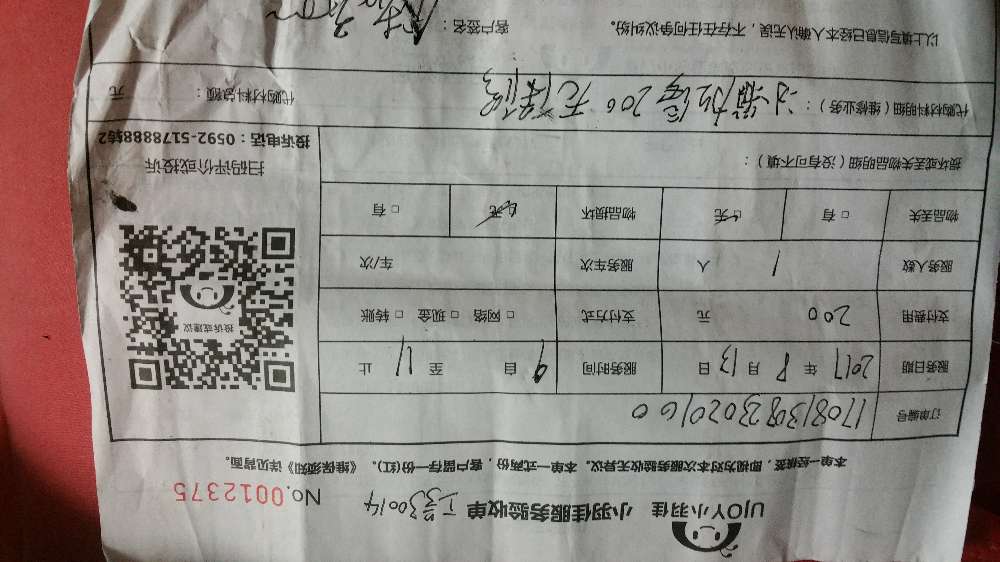 UJOY小羽佳 小羽佳服务验收单 工号30014 No.0012375
本单一经接签,即视为对本次服务验收无异议。本单一式两份,客户留存一份(红)。《维保须知》详见背面。
订单编号 170813082302016 0
服务日期 2017 年 8 月 13 日 服务时间 自 9 至 11 止
支付费用 200 元 支付方式 □ 网络 □ 现金 □ 转账
服务人数 1 人 服务车次 车/次
物品丢失 □ 有 □ 无 物品损坏 □ 无 □ 有
损坏或丢失物品明细(没有可不填):
投诉或建议
扫码评价或投诉
投诉电话:0592-5178888转2
代购材料明细(维修业务): 200 无保
代购材料总额: 元
以上填写信息已经本人确认无误,不存在任何争议纠纷。 客户签名: